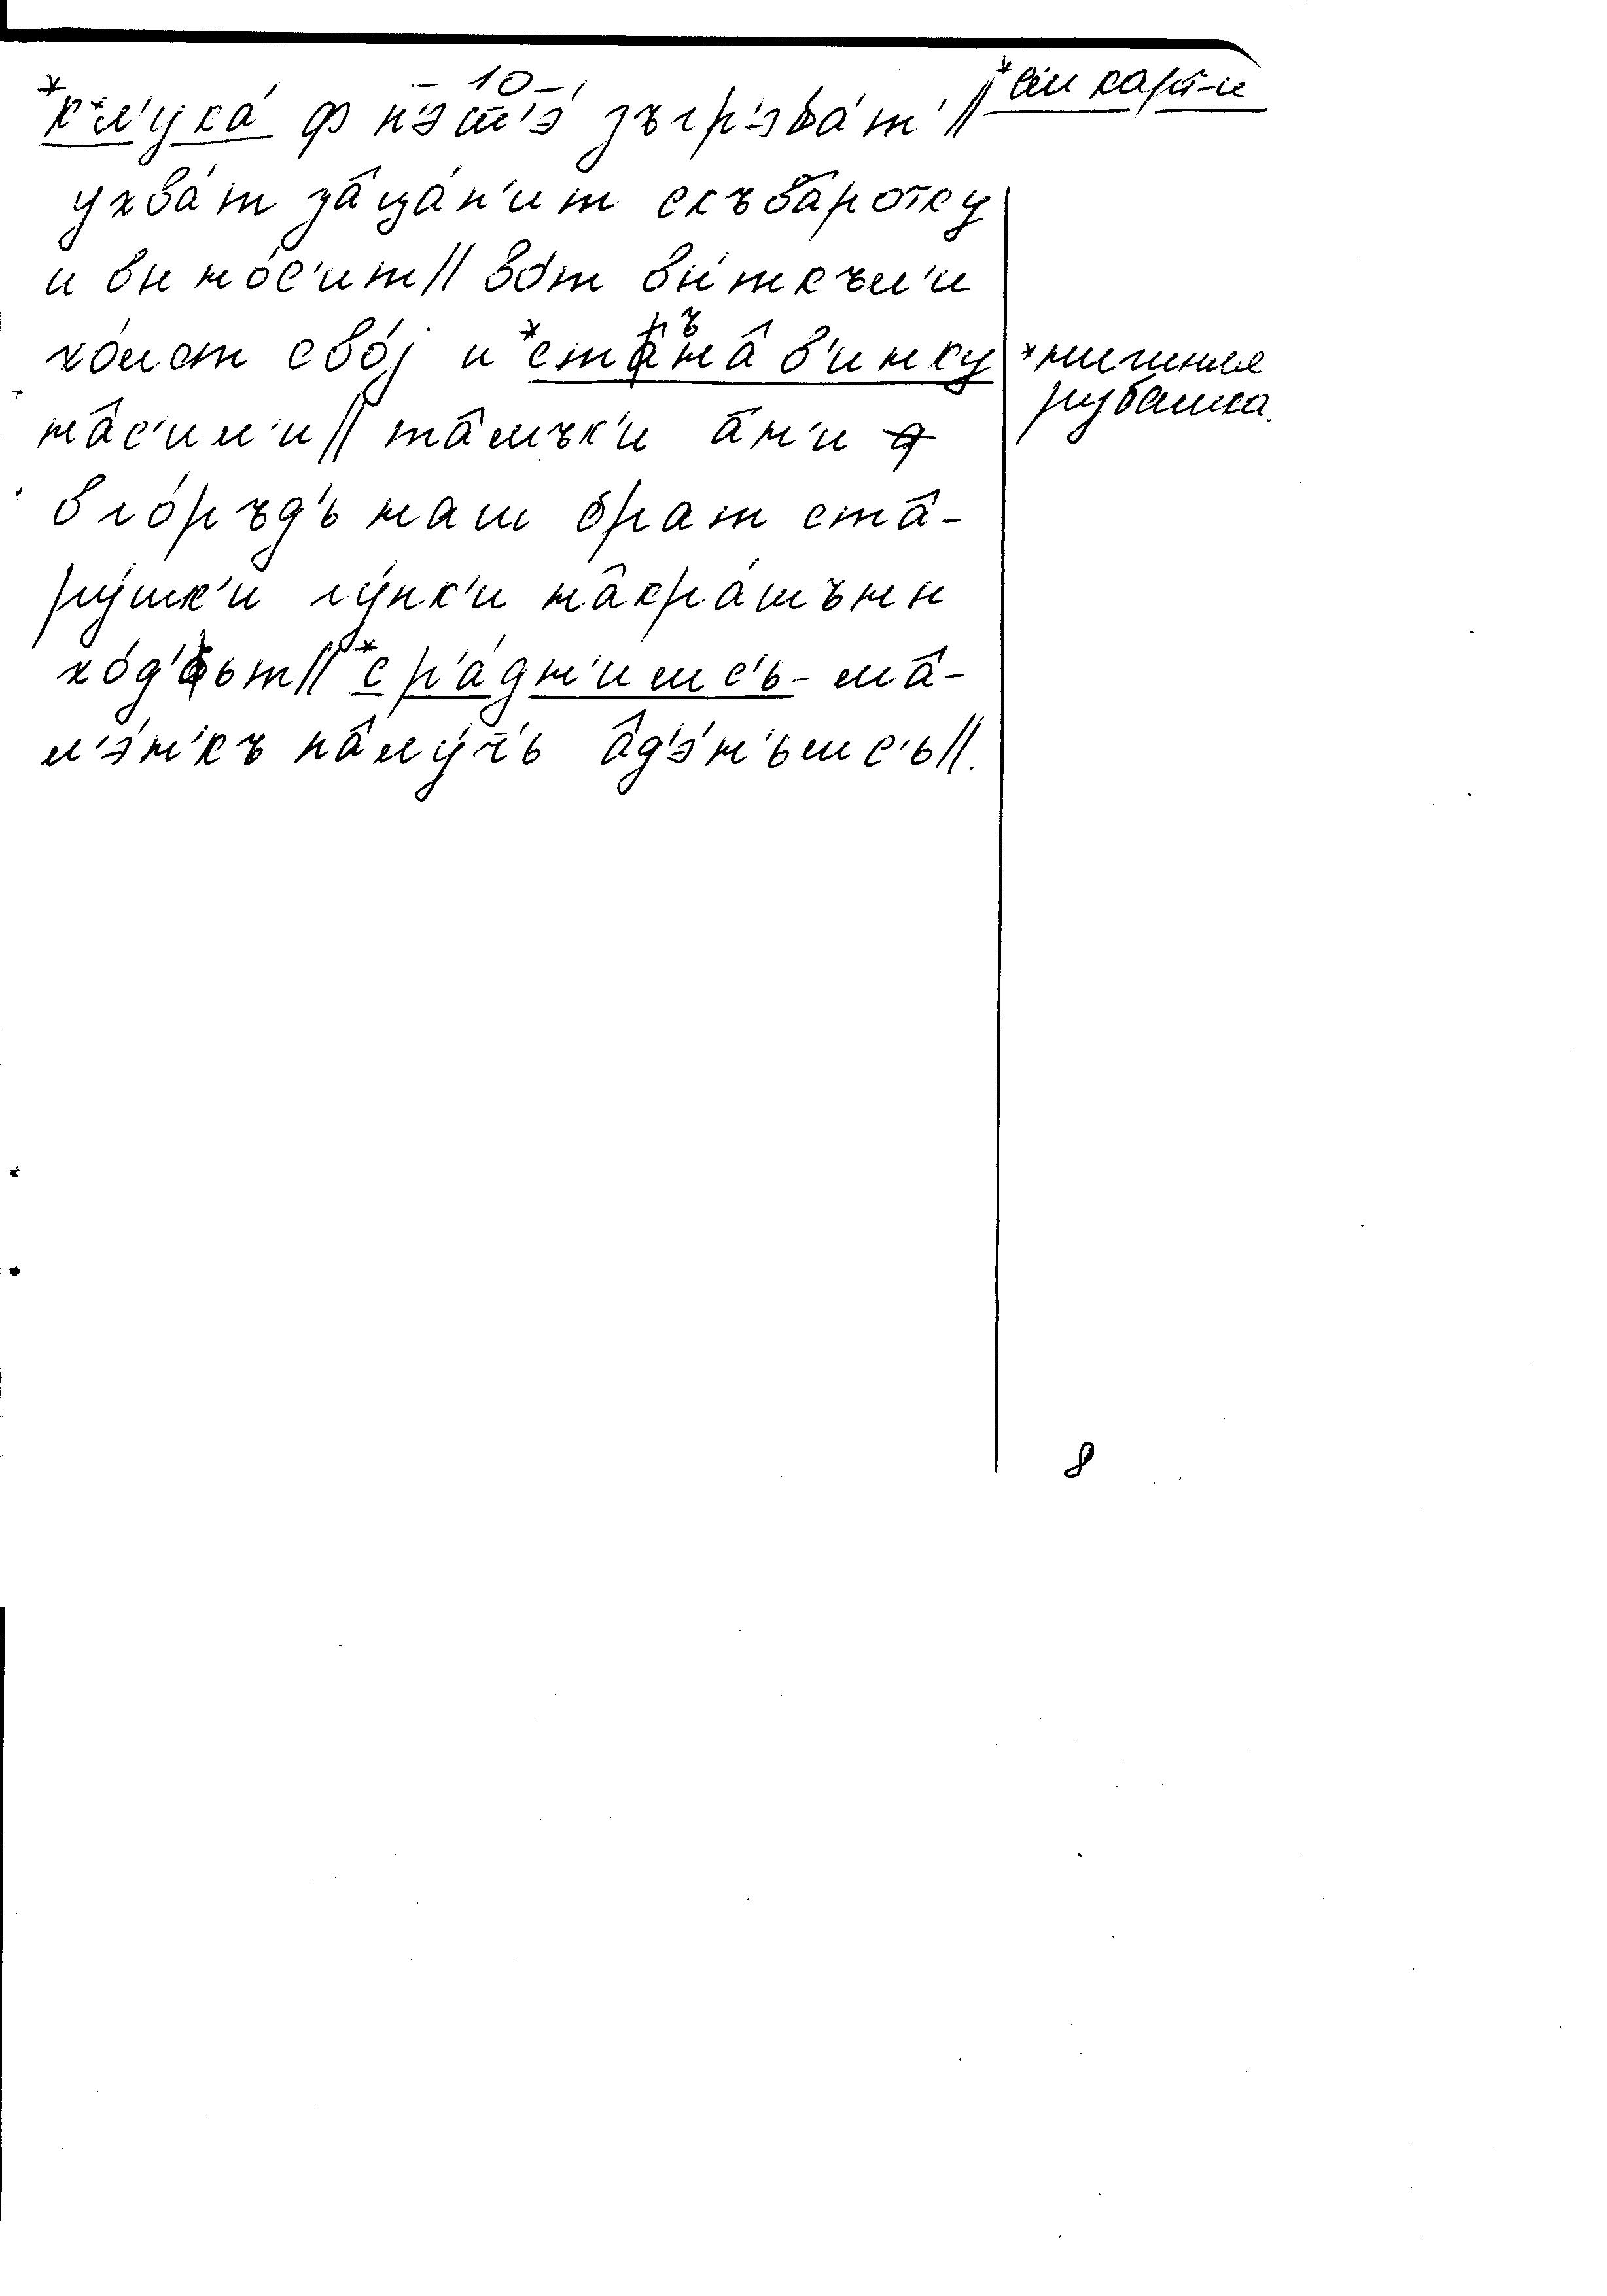 - 10 -
*к*л'ука́ ф п'эт'э́ зъгр'эва́т'// *см карт-и
ухва́т за̂ца́п'ит скъва̂ротку
и вы но́с'ит// во́т вы́ткъл'и
хо́лст сво́j и *стъна̂в'инку *нижняя
рубашка.
на̂с'ил'и// та̂лък'и а̂н'и
вго́ръд'ь наш брат ста̂-
ру́шк'и гу́пк'и на̂кра́шъны
хо́д'ьт// *ср'а́дн'имс'ь - ма̂-
л'э́н'къ па̂лу́ч'ь а̂д'э́н'ьмс'ь//.
8